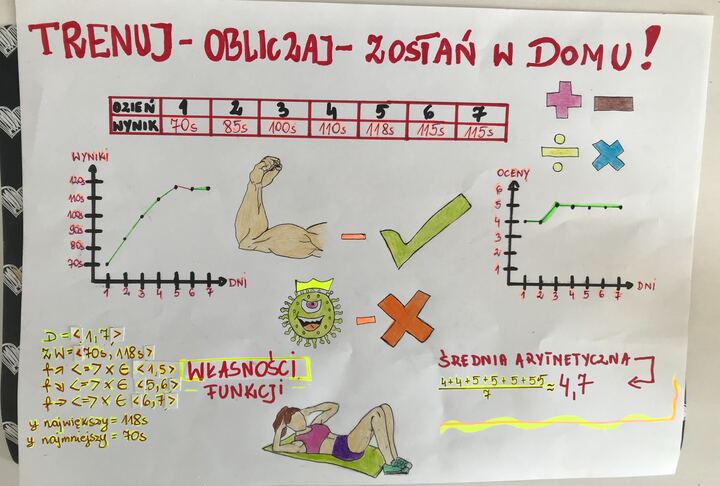 TRENUJ - OBLICZAJ - ZOSTAŃ W DOMU!
DZIEŃ 1 2 3 4 5 6 7
WYNIK 70s 85s 100s 110s 118s 115s 115s
WYNIKI
120s
110s
100s
90s
80s
70s
1 2 3 4 5 6 7
DNI
OCENY
6
5
4
3
2
1
1 2 3 4 5 6 7
DNI
D = <1,7>
ZW = <70s, 118s>
f↗ <=> x ∈ <1,5>
f↘ <=> x ∈ <5,6>
f→ <=> x ∈ <6,7>
y największy = 118s
y najmniejszy = 70s
WŁASNOŚCI
FUNKCJI
ŚREDNIA ARYTMETYCZNA
4+4+5+5+5+55
7
≈ 4,7